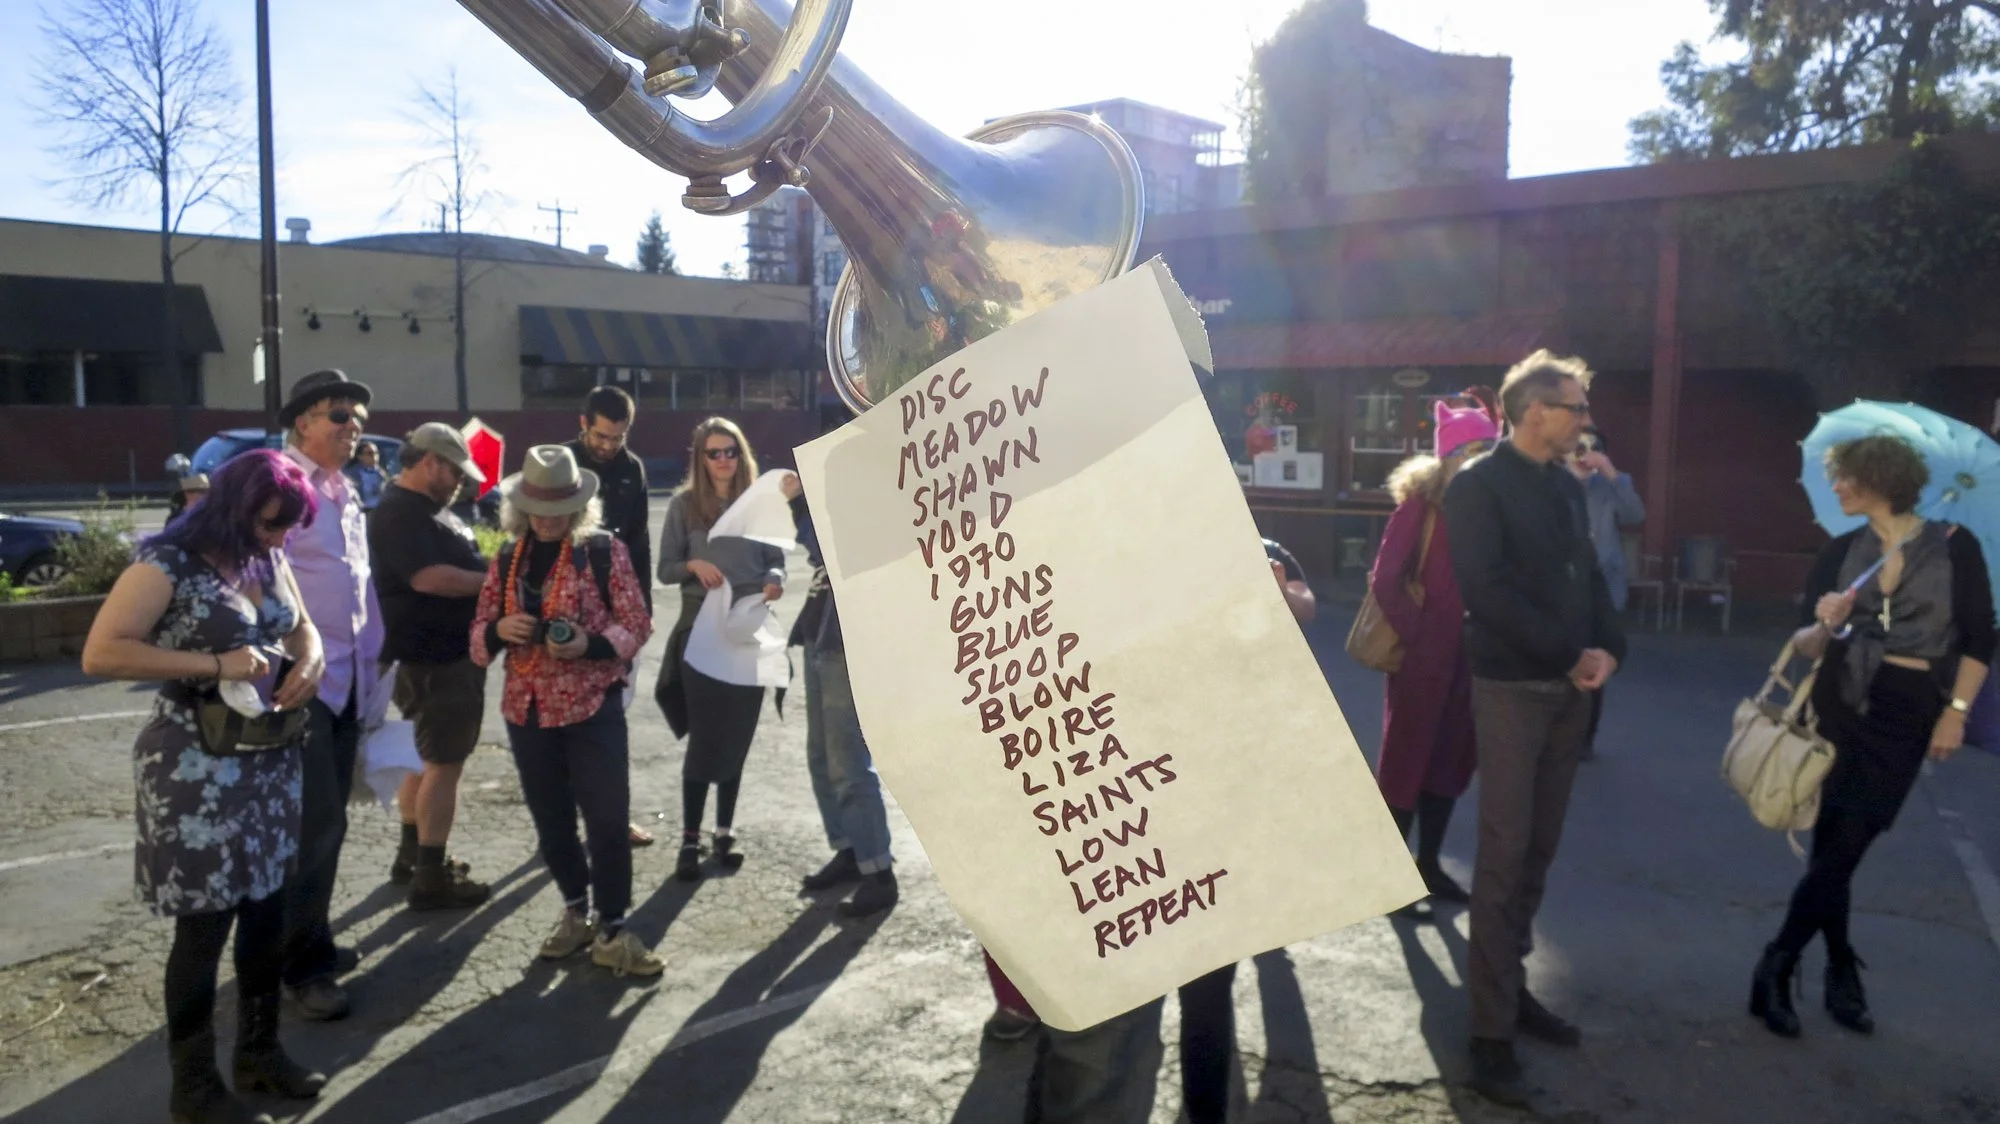 bar
COFFEE
DISC
MEADOW
SHAWN
VOOD
1970
GUNS
BLUE
SLOOP
BLOW
BOIRE
LIZA
SAINTS
LOW
LEAN
REPEAT